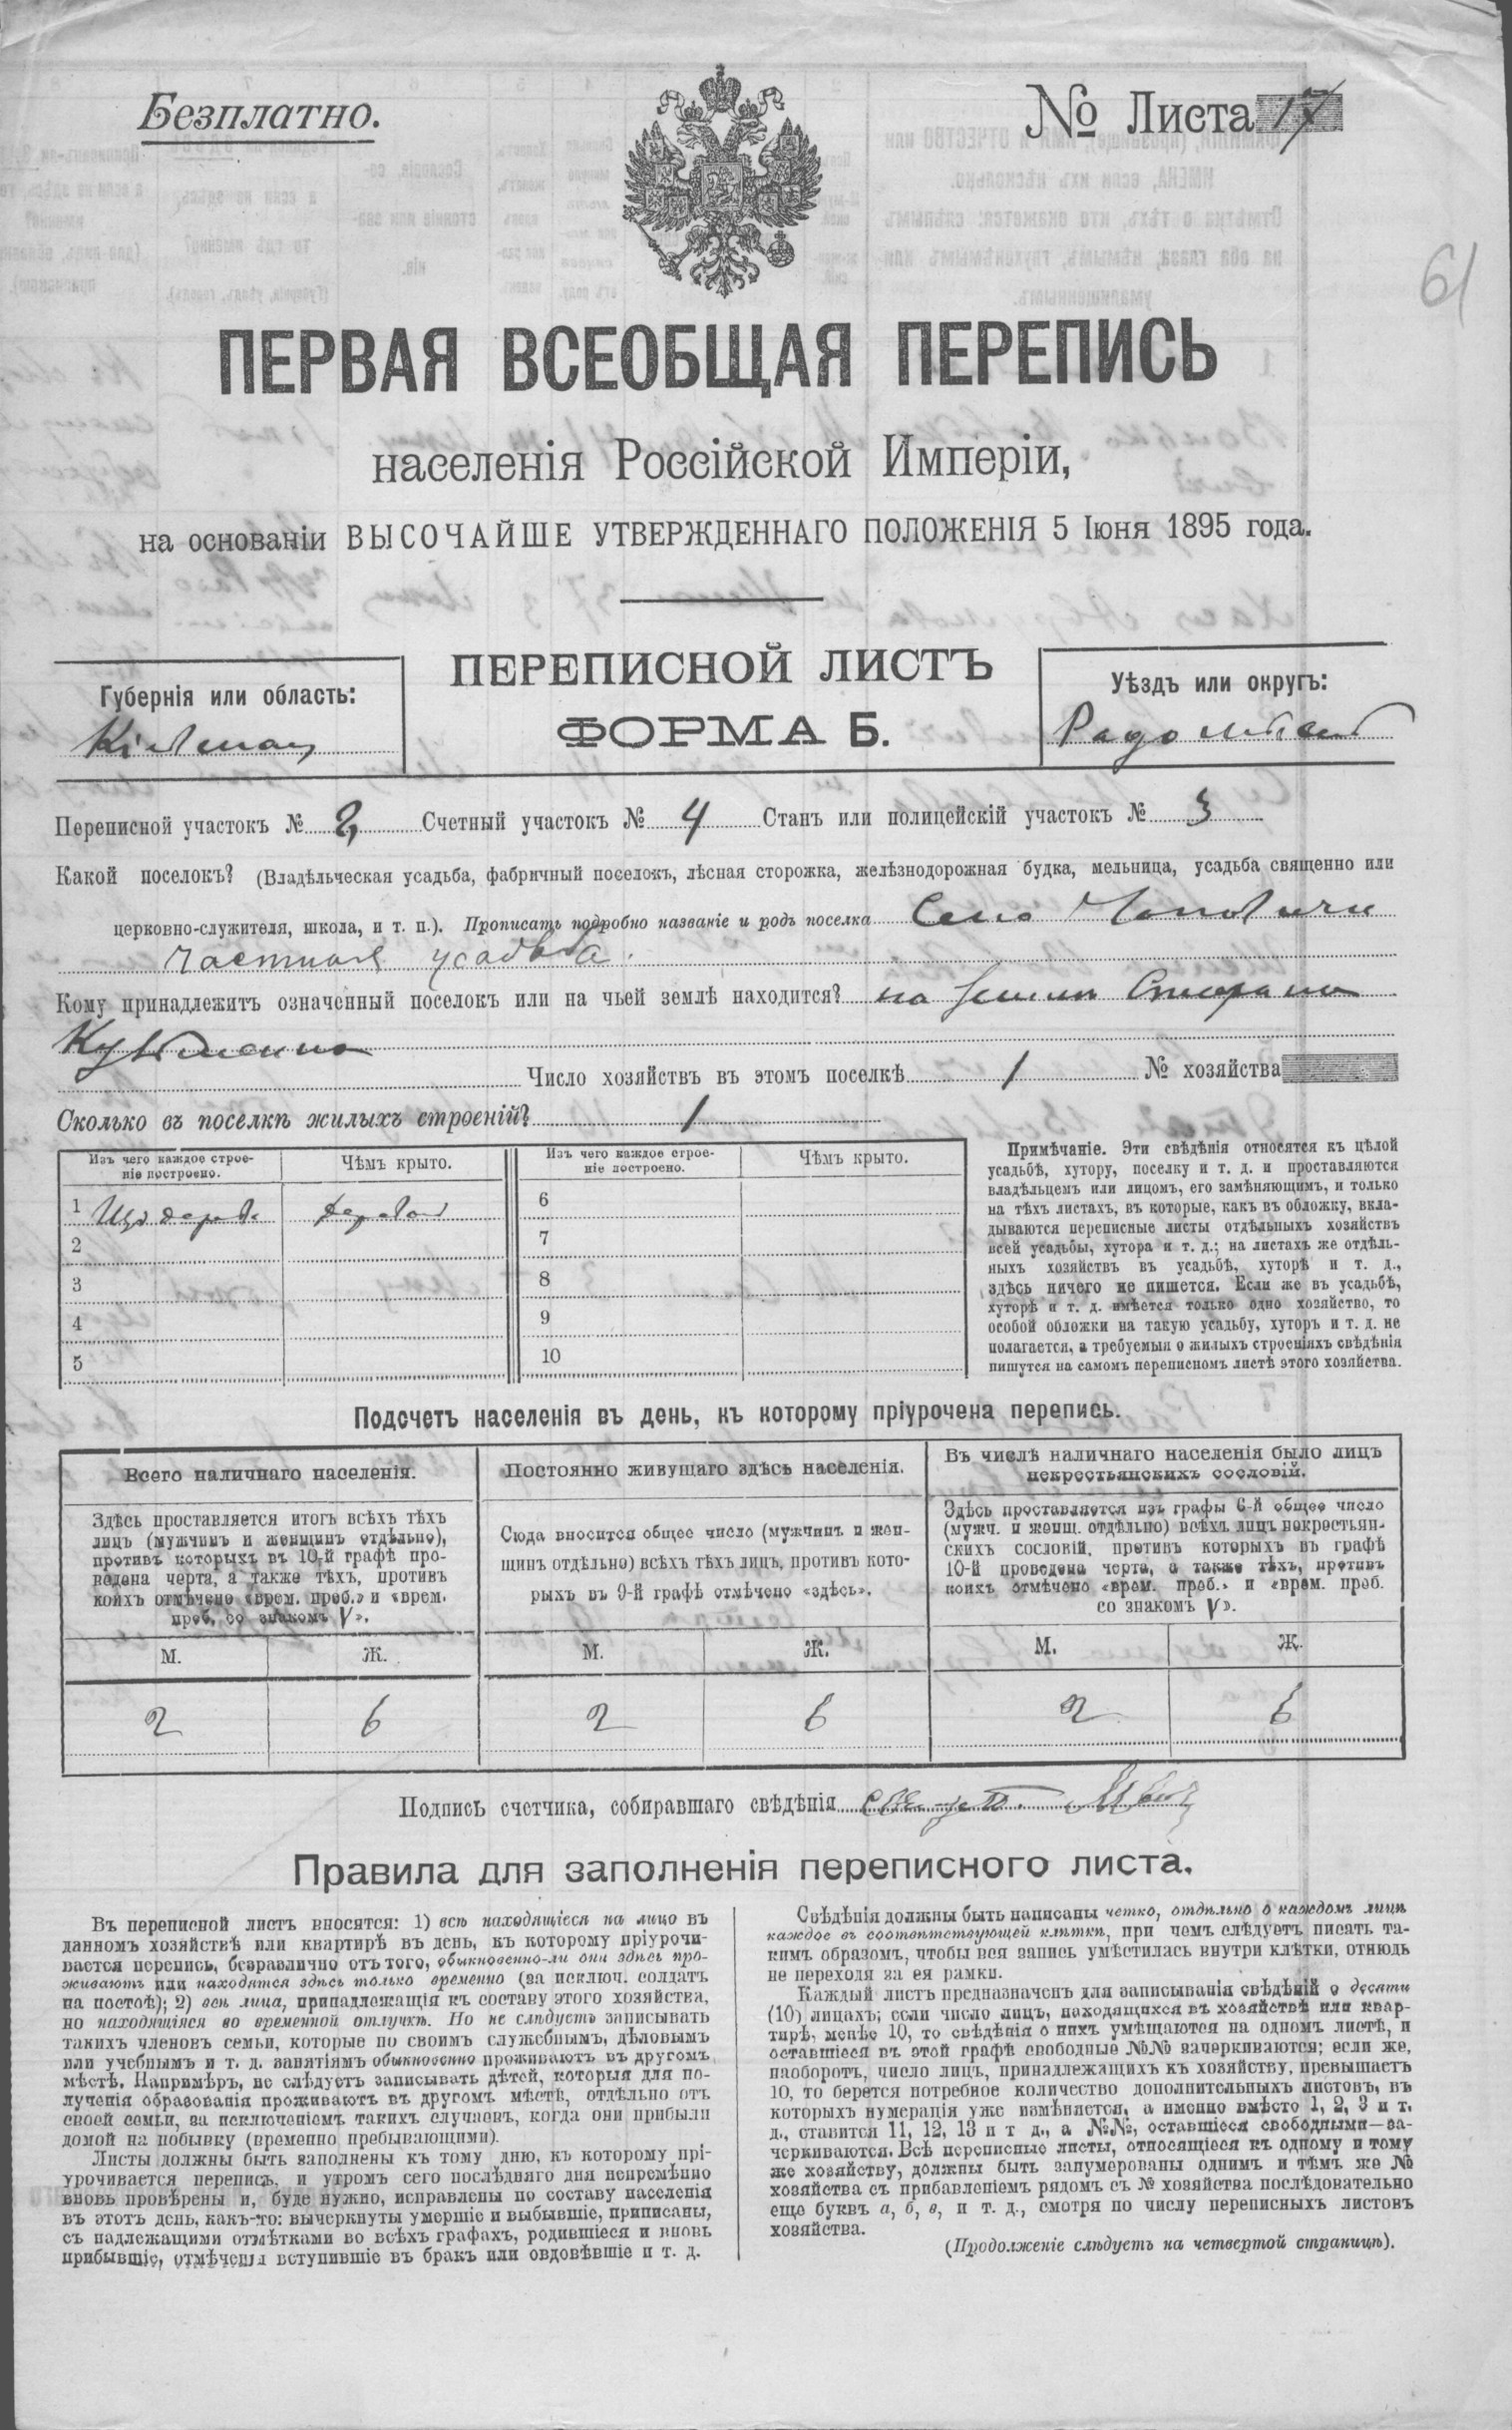 Безплатно.
№ Листа 17
61
ПЕРВАЯ ВСЕОБЩАЯ ПЕРЕПИСЬ
населенія Россійской Имперіи,
на основаніи ВЫСОЧАЙШЕ УТВЕРЖДЕННАГО ПОЛОЖЕНІЯ 5 Іюня 1895 года.
Губернія или область:
Кіевская
ПЕРЕПИСНОЙ ЛИСТЪ
ФОРМА Б.
Уѣздъ или округъ:
Радомысл
Переписной участокъ № 2 Счетный участокъ № 4 Станъ или полицейскій участокъ № 3
Какой поселокъ? (Владѣльческая усадьба, фабричный поселокъ, лѣсная сторожка, желѣзнодорожная будка, мельница, усадьба священно или
церковно-служителя, школа, и т. п.). Прописать подробно названіе и родъ поселка Село Чоповичи
частная усадьба.
Кому принадлежитъ означенный поселокъ или на чьей землѣ находится? на земли
Число хозяйствъ въ этомъ поселкѣ 1 № хозяйства
Сколько въ поселкѣ жилыхъ строеній? 1
Изъ чего каждое строе-
ніе построено.
Чѣмъ крыто.
Изъ чего каждое строе-
ніе построено.
Чѣмъ крыто.
1 Изъ дерева
6
2
7
3
8
4
9
5
10
Примѣчаніе. Эти свѣдѣнія относятся къ цѣлой
усадьбѣ, хутору, поселку и т. д. и проставляются
владѣльцемъ или лицомъ, его замѣняющимъ, и только
на тѣхъ листахъ, въ которые, какъ въ обложку, вкла-
дываются переписные листы отдѣльныхъ хозяйствъ
всей усадьбы, хутора и т. д.; на листахъ же отдѣль-
ныхъ хозяйствъ въ усадьбѣ, хуторѣ и т. д.,
здѣсь ничего не пишется. Если же въ усадьбѣ,
хуторѣ и т. д. имѣется только одно хозяйство, то
особой обложки на такую усадьбу, хуторъ и т. д. не
полагается, а требуемыя о жилыхъ строеніяхъ свѣдѣнія
пишутся на самомъ переписномъ листѣ этого хозяйства.
Подсчетъ населенія въ день, къ которому пріурочена перепись.
Всего наличнаго населенія.
Постоянно живущаго здѣсь населенія.
Въ числѣ наличнаго населенія было лицъ
некрестьянскихъ сословій.
Здѣсь проставляется итогъ всѣхъ тѣхъ
лицъ (мужчинъ и женщинъ отдѣльно),
противъ которыхъ въ 10-й графѣ про-
ведена черта, а также тѣхъ, противъ
коихъ отмѣчено «врем. преб.» и «врем.
преб. со знакомъ V».
Сюда вносится общее число (мужчинъ и жен-
щинъ отдѣльно) всѣхъ тѣхъ лицъ, противъ кото-
рыхъ въ 9-й графѣ отмѣчено «здѣсь».
Здѣсь проставляется изъ графы 6-й общее число
(мужч. и женщ. отдѣльно) всѣхъ лицъ некрестьян-
скихъ сословій, противъ которыхъ въ графѣ
10-й проведена черта, а также тѣхъ, противъ
коихъ отмѣчено «врем. преб.» и «врем. преб.
со знакомъ V».
М. Ж. М. Ж. М. Ж.
2 6 2 6 2 6
Подпись счетчика, собиравшаго свѣдѣнія
Правила для заполненія переписного листа.
Въ переписной листъ вносятся: 1) всѣ находящіеся на лицо въ
данномъ хозяйствѣ или квартирѣ въ день, къ которому пріурочи-
вается перепись, безразлично отъ того, обыкновенно-ли они здѣсь про-
живаютъ или находятся здѣсь только временно (за исключ. солдатъ
на постоѣ); 2) всѣ лица, принадлежащія къ составу этого хозяйства,
но находящіяся во временной отлучкѣ. Но не слѣдуетъ записывать
такихъ членовъ семьи, которые по своимъ служебнымъ, дѣловымъ
или учебнымъ и т. д. занятіямъ обыкновенно проживаютъ въ другомъ
мѣстѣ. Напримѣръ, не слѣдуетъ записывать дѣтей, которыя для по-
лученія образованія проживаютъ въ другомъ мѣстѣ, отдѣльно отъ
своей семьи, за исключеніемъ такихъ случаевъ, когда они прибыли
домой на побывку (временно пребывающими).
Листы должны быть заполнены къ тому дню, къ которому прі-
урочивается перепись, и утромъ сего послѣдняго дня непремѣнно
вновь провѣрены и, буде нужно, исправлены по составу населенія
въ этотъ день, какъ-то: вычеркнуты умершіе и выбывшіе, приписаны,
съ надлежащими отмѣтками во всѣхъ графахъ, родившіеся и вновь
прибывшіе, отмѣчены вступившіе въ бракъ или овдовѣвшіе и т. д.
Свѣдѣнія должны быть написаны четко, отдѣльно о каждомъ лицѣ
каждое въ соотвѣтствующей клѣткѣ, при чемъ слѣдуетъ писать та-
кимъ образомъ, чтобы вся запись умѣстилась внутри клѣтки, отнюдь
не переходя за ея рамки.
Каждый листъ предназначенъ для записыванія свѣдѣній о десяти
(10) лицахъ; если число лицъ, находящихся въ хозяйствѣ или квар-
тирѣ, менѣе 10, то свѣдѣнія о нихъ умѣщаются на одномъ листѣ, и
оставшіеся въ этой графѣ свободные №№ зачеркиваются; если же,
наоборотъ, число лицъ, принадлежащихъ къ хозяйству, превышаетъ
10, то берется потребное количество дополнительныхъ листовъ, въ
которыхъ нумерація уже измѣняется, а именно вмѣсто 1, 2, 3 и т.
д., ставится 11, 12, 13 и т д., а №№, оставшіеся свободными—за-
черкиваются. Всѣ переписные листы, относящіеся къ одному и тому
же хозяйству, должны быть занумерованы однимъ и тѣмъ же №
хозяйства съ прибавленіемъ рядомъ съ № хозяйства послѣдовательно
еще буквъ а, б, в, и т. д., смотря по числу переписныхъ листовъ
хозяйства.
(Продолженіе слѣдуетъ на четвертой страницѣ).